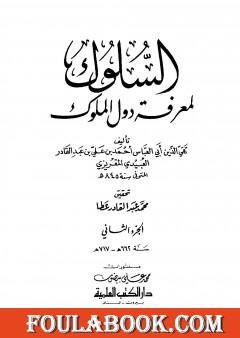 السلوك
لمعرفة دول الملوك
تأليف
تقي الدين أبي العباس أحمد بن علي بن عبد القادر
العبيدي المقريزي
المتوفى سنة ٨٤٥ هـ
تحقيق
محمد عبد القادر عطا
الجزء الثاني
سنة ٦٦٢ هـ - ٧١٧ هـ
منشورات
محمد علي بيضون
دار الكتب العلمية
FOULABOOK.COM